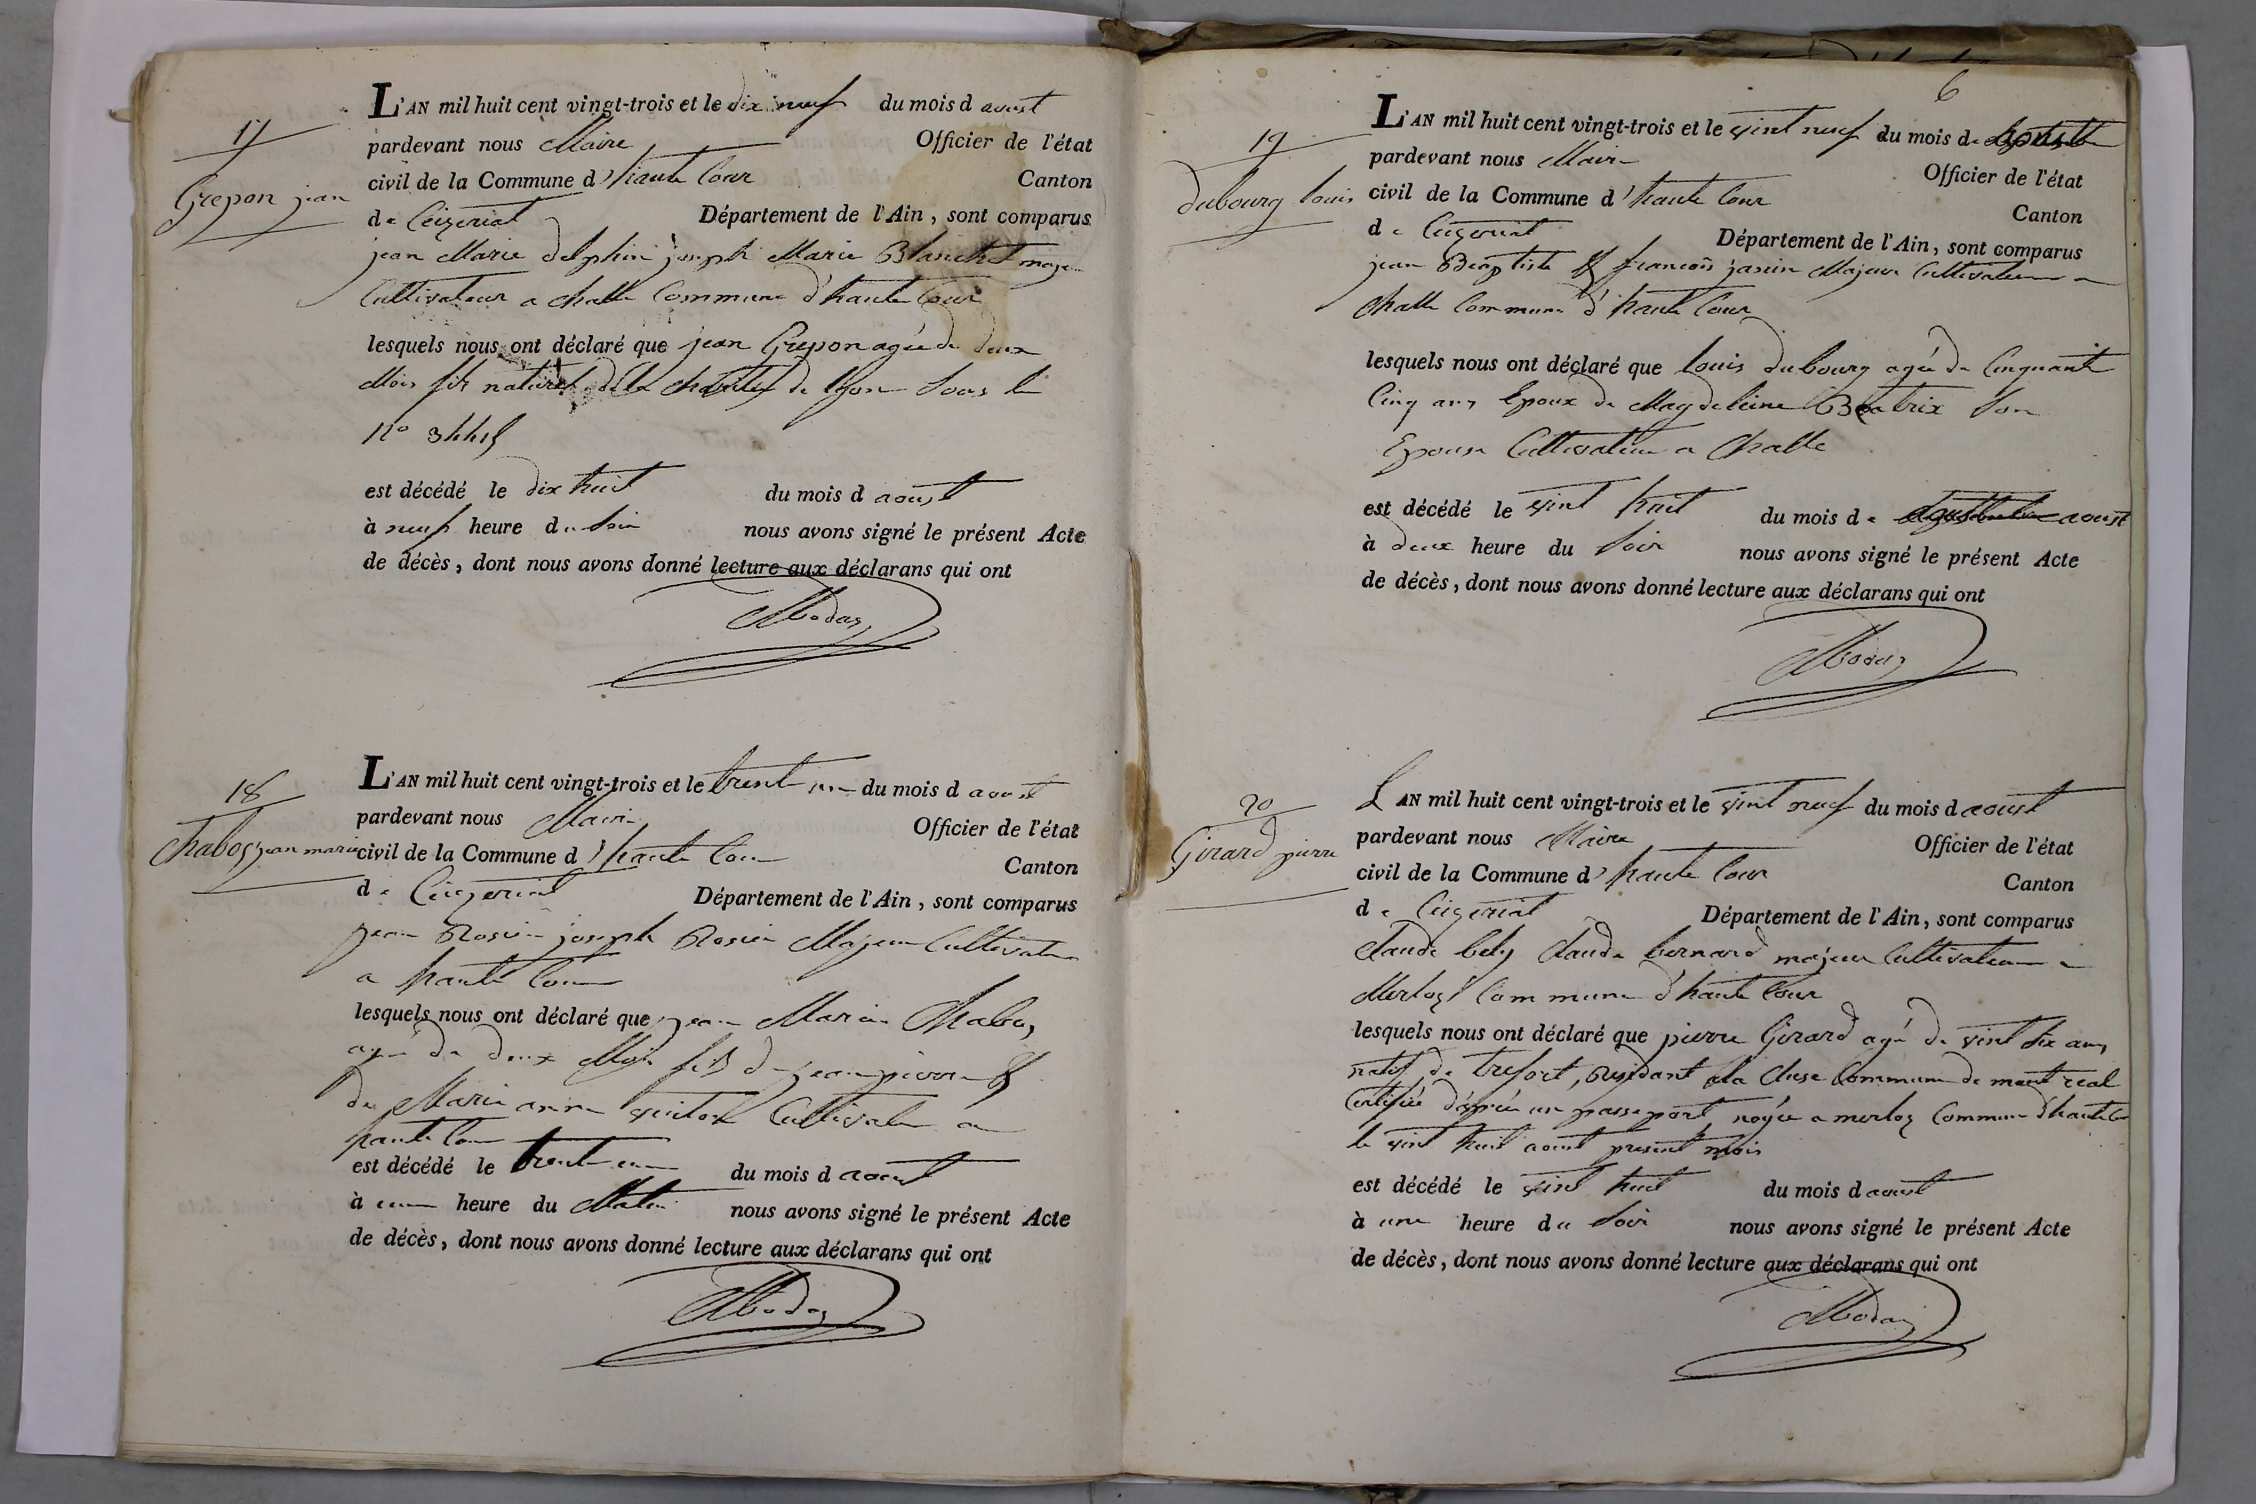 17
Grepon jean
L'AN mil huit cent vingt-trois et le dix neuf du mois d aoust
pardevant nous Maire Officier de l'état
civil de la Commune d'haute Cour Canton
de Ceizeriat Département de l'Ain, sont comparus
jean Marie delphin joseph Marie Blanchet maje
Cultivateur a challe Commune d'haute Cour
lesquels nous ont déclaré que jean Grepon agée de deux
Mois fils naturel de la charité de lyon Sous le
N°
est décédé le dix huit du mois d aoust
à neuf heure du Soir nous avons signé le présent Acte
de décès, dont nous avons donné lecture aux déclarans qui ont
18
Chaboz jean marie
L'AN mil huit cent vingt-trois et le trent un du mois d aoust
pardevant nous Maire Officier de l'état
civil de la Commune d'haute Cour Canton
de Ceizeriat Département de l'Ain, sont comparus
jean Rosier joseph Rosier Majeur Cultivateur
a haute Cour
lesquels nous ont déclaré que jean Marie Chaboz
agé de deux Mois fils de jean pierre &
de Marie anne Cultivateur a
haute Cour
est décédé le trente un du mois d aoust
à une heure du Matin nous avons signé le présent Acte
de décès, dont nous avons donné lecture aux déclarans qui ont
6
19
dubourg louis
L'AN mil huit cent vingt-trois et le vint neuf du mois de
pardevant nous Maire Officier de l'état
civil de la Commune d'haute Cour Canton
de Ceizeriat Département de l'Ain, sont comparus
jean Baptiste & francois janin Majeur Cultivateur a
challe Commune d'haute Cour
lesquels nous ont déclaré que louis dubourg agée de Cinquante
Cinq ans Epoux de Magdeleine Béatrix Son
Epouse Cultivateur a Challe
est décédé le vint huit du mois de aoust
à deux heure du Soir nous avons signé le présent Acte
de décès, dont nous avons donné lecture aux déclarans qui ont
20
Girard pierre
L'AN mil huit cent vingt-trois et le vint neuf du mois d aoust
pardevant nous Maire Officier de l'état
civil de la Commune d'haute Cour Canton
de Ceizeriat Département de l'Ain, sont comparus
claude bely claude bernard majeur Cultivateur a
Merloz Commune d'haute Cour
lesquels nous ont déclaré que pierre Girard agé de vint six ans
natif de trefort, Residant a la Cluse Commune de mont real
Certifiée d'aprée un passe port noyée a merloz Commune d'haute Cour
le vint huit aoust present mois
est décédé le vint huit du mois d aoust
à une heure du Soir nous avons signé le présent Acte
de décès, dont nous avons donné lecture aux déclarans qui ont